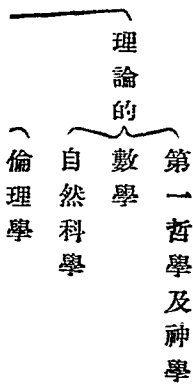 理論的
第一哲學及神學
數學
自然科學
倫理學